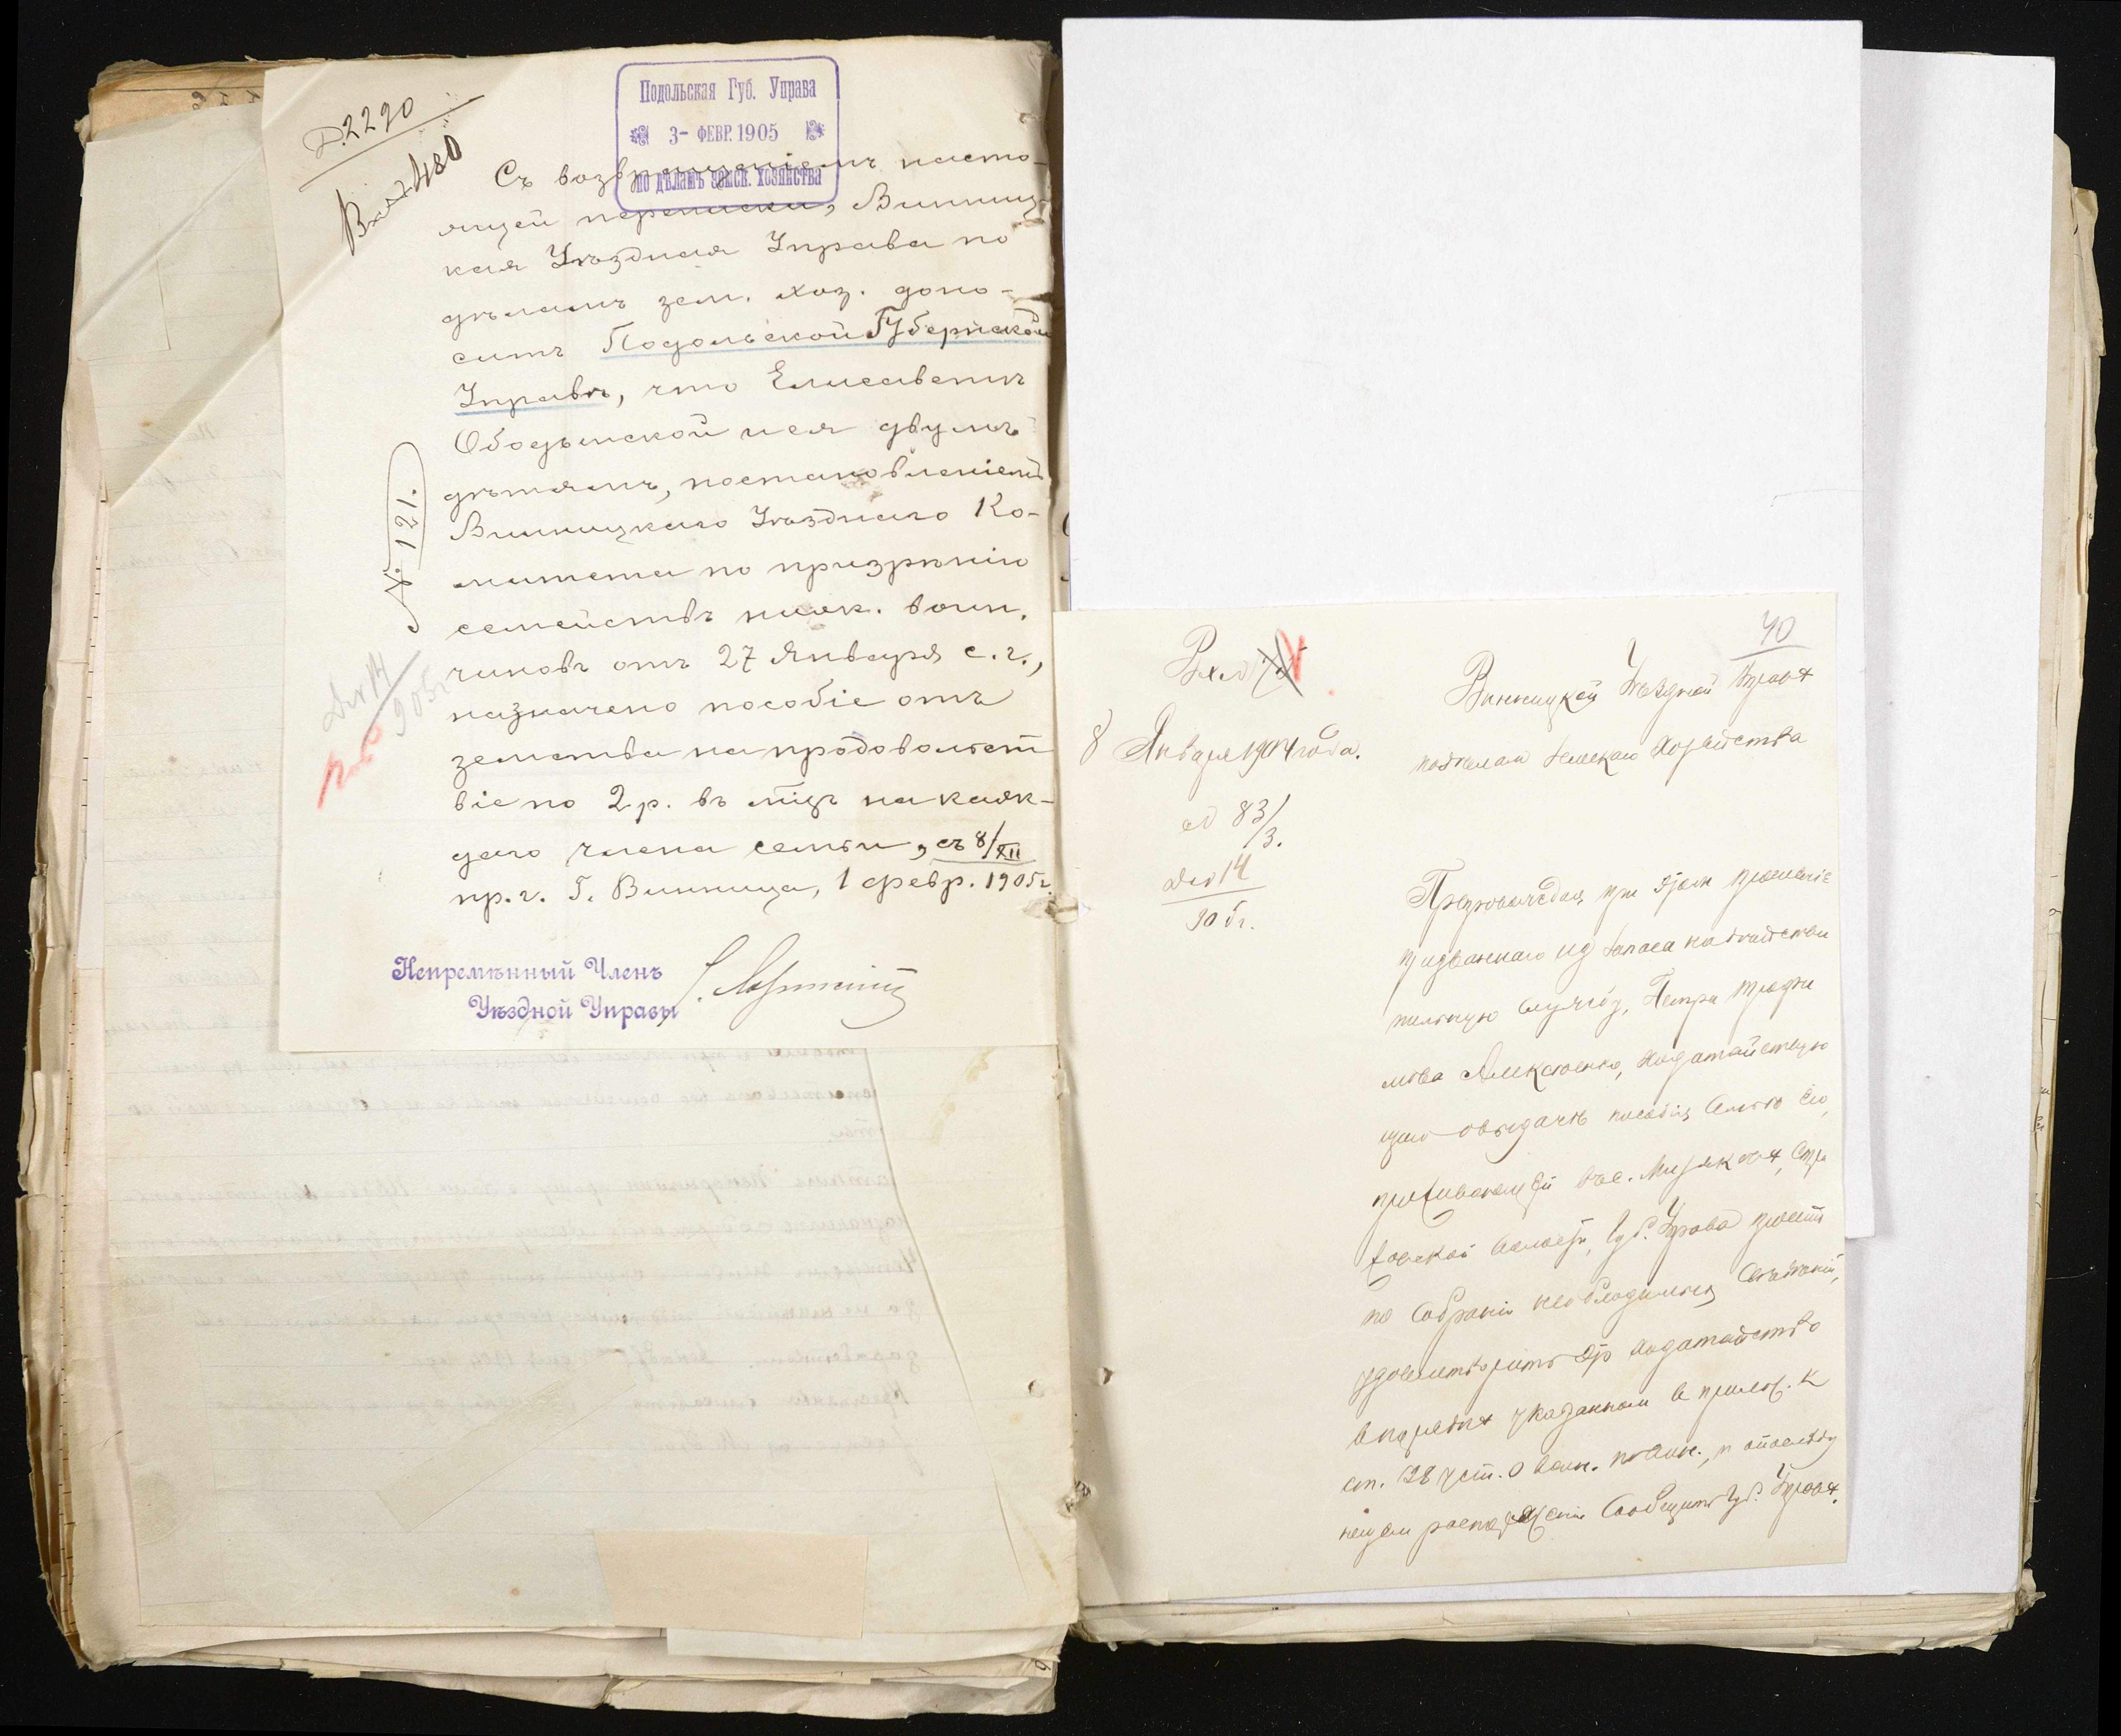 Д. 2290
Вх. № 480
Подольская Губ. Управа
3- ФЕВР. 1905
по дѣламъ земск. хозяйства
Съ возвращеніемъ насто-
ящей переписки, Винниц-
кая Уѣздная Управа по
дѣламъ зем. хоз. доно-
ситъ Подольской Губернской
Управѣ, что Елисаветѣ
Ободынской и ея двумъ
дѣтямъ, постановленіемъ
Винницкаго Уѣзднаго Ко-
митета по призрѣнію
семействъ нижн. воин.
чиновъ отъ 27 Января с.г.,
назначено пособіе отъ
земства на продовольст
віе по 2 р. въ мѣц на каж-
даго члена семьи, съ 8/XII
пр. г. Г. Винница, 1 февр. 1905 г.
№ 121.
Д № 14
905
Непремѣнный Членъ
Уѣздной Управы
40
Винницкой Уѣздной Управѣ
по дѣламъ Земскаго Хозяйства
8 Января 1904 года.
№ 83/3.
Д № 14
905 г.
Препровождая при этомъ прошеніе
призваннаго изъ запаса на дѣйстви
тельную службу, Петра Трофи
мова Алексюенко, ходатайствую
щаго о выдачѣ пособія семьѣ его,
проживающей въ с. Мизяковѣ, Стри
жавской волости, Губ. Управа проситъ
по собраніи необходимыхъ свѣдѣній,
удовлетворить это ходатайство
въ порядкѣ указанномъ въ прилож. къ
ст. 38 уст. о воин. повин., и о послѣду
ющемъ распоряженіи сообщить Губ. Управѣ.